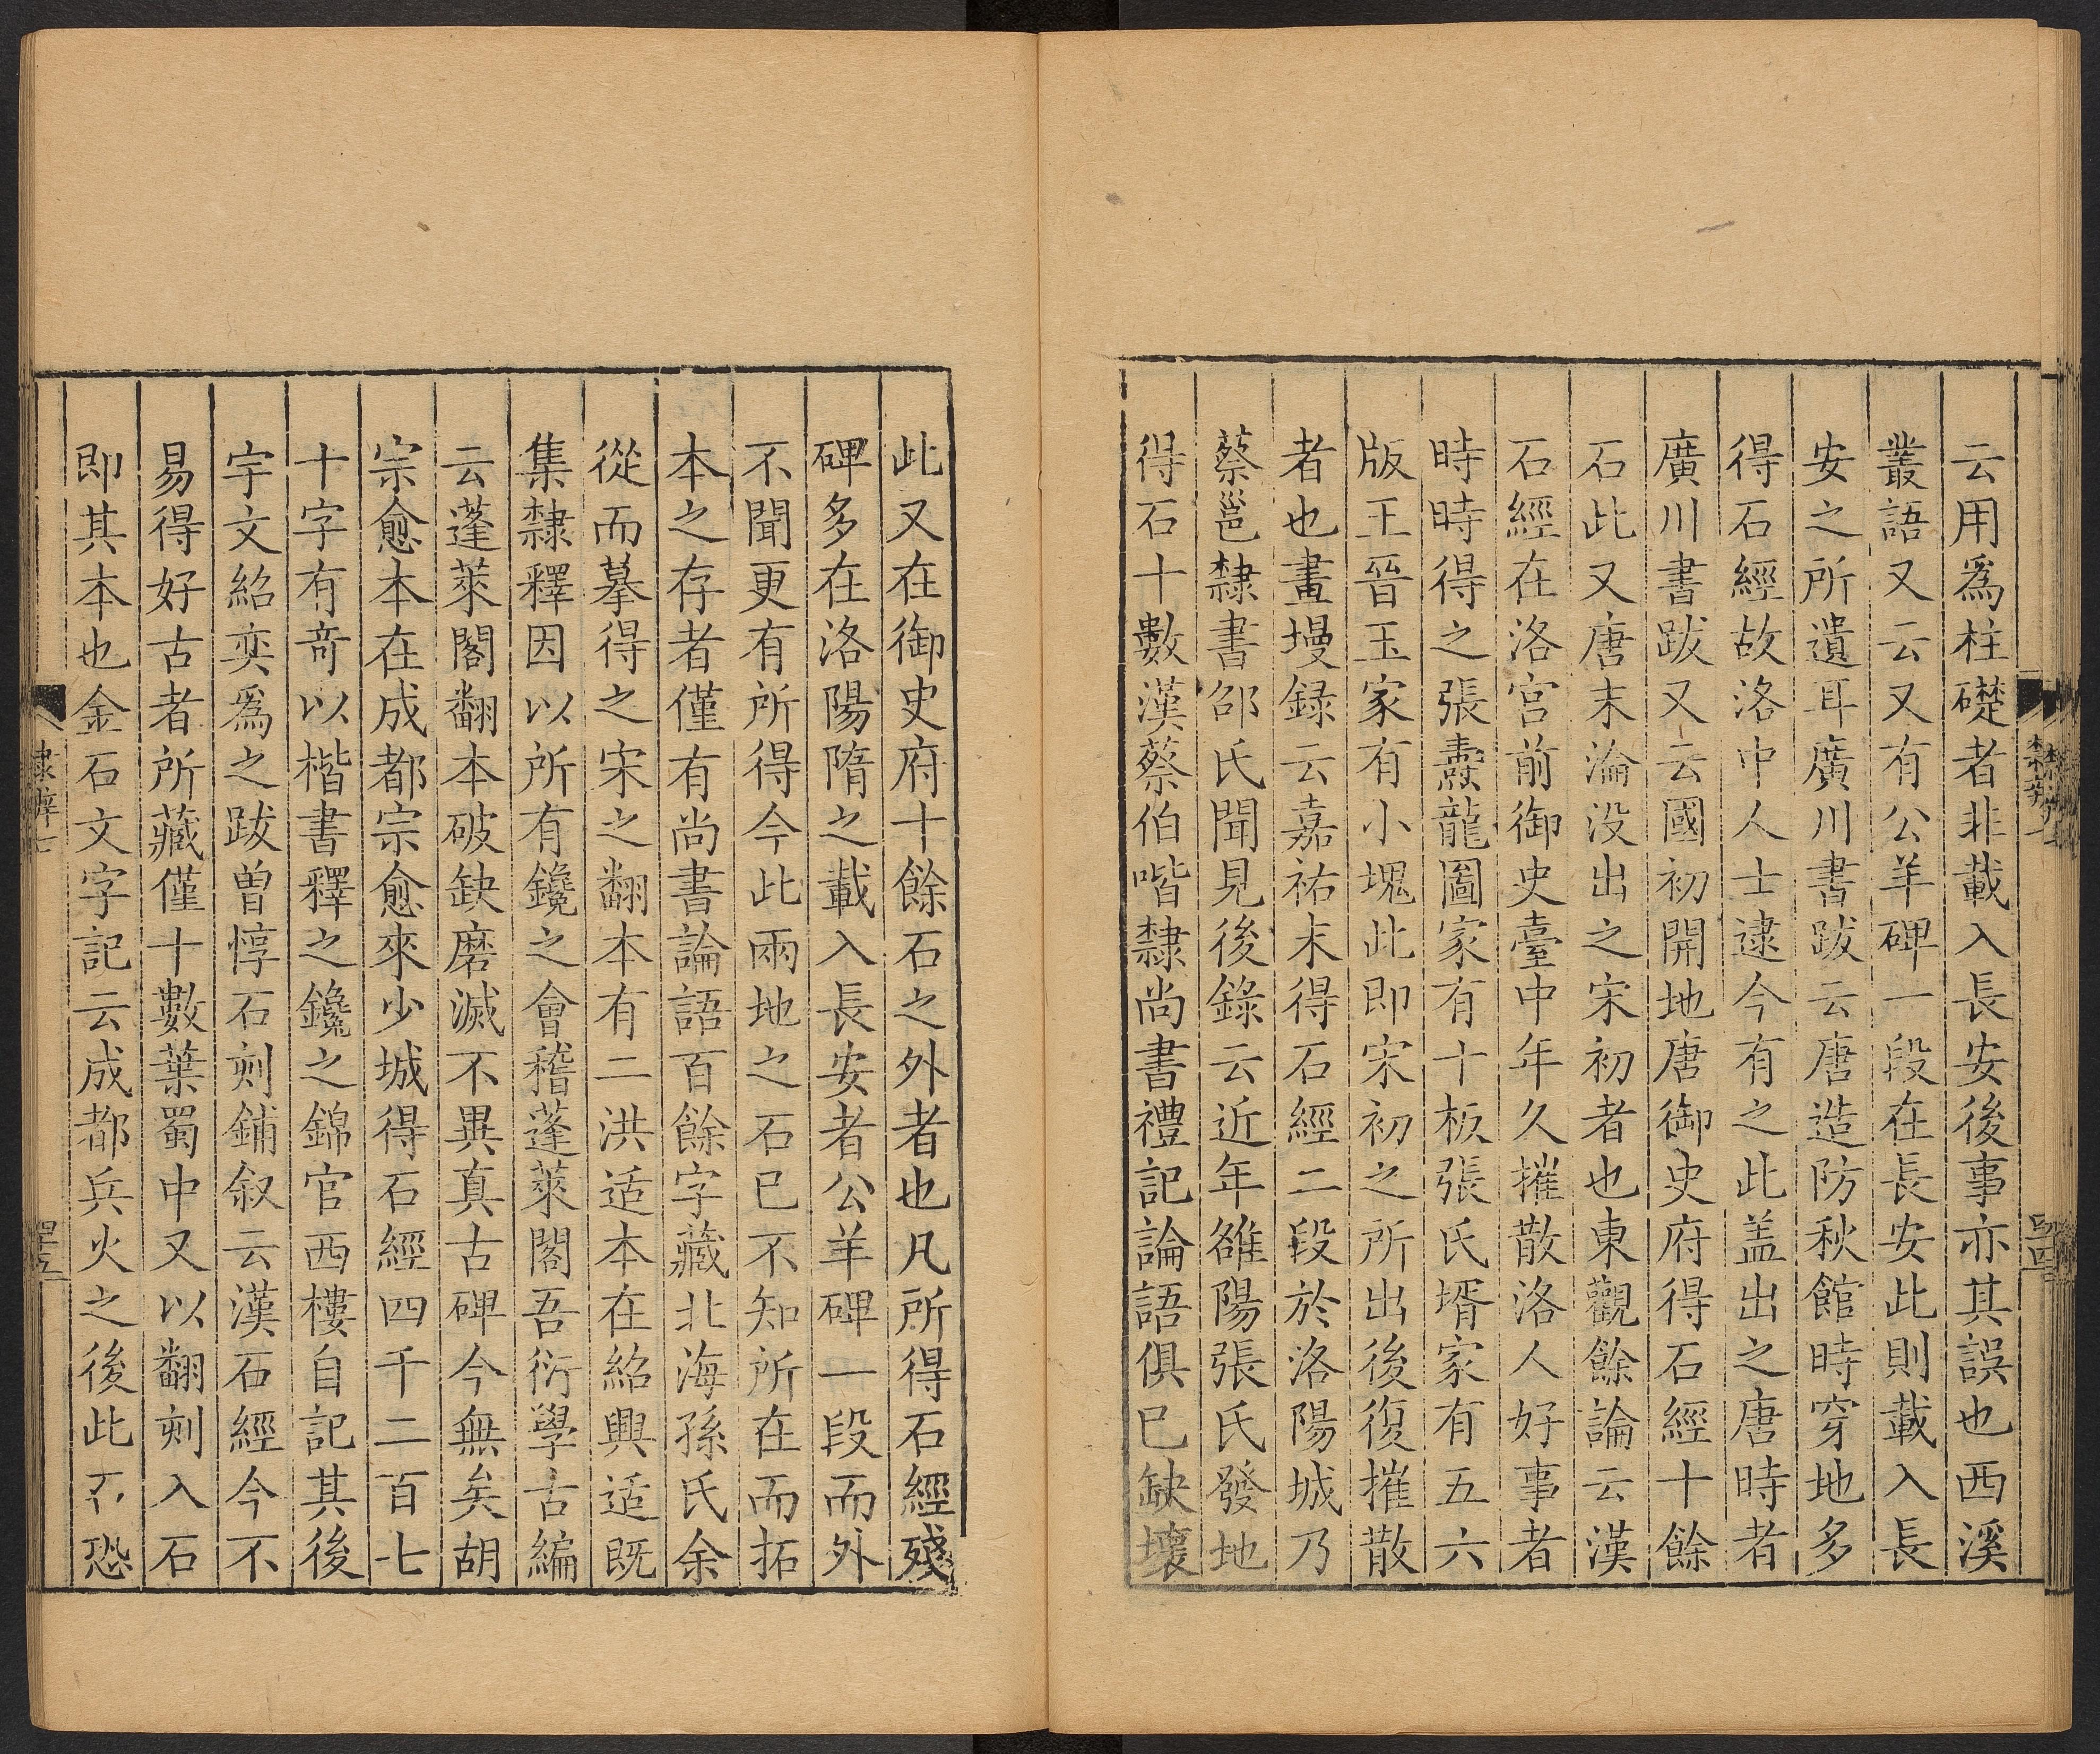 云用爲柱礎者非載入長安後事亦其誤也西溪
叢語又云又有公羊碑一段在長安此則載入長
安之所遺耳廣川書跋云唐造防秋館時穿地多
得石經故洛中人士逮今有之此盖出之唐時者
廣川書跋又云國初開地唐御史府得石經十餘
石此又唐末淪没出之宋初者也東觀餘論云漢
石經在洛宫前御史臺中年久摧散洛人好事者
時時得之張燾龍圖家有十板張氏壻家有五六
版王晉玉家有小塊此即宋初之所出後復摧散
者也畫墁録云嘉祐末得石經二段於洛陽城乃
蔡邕隸書邵氏聞見後錄云近年雒陽張氏發地
得石十數漢蔡伯喈隸尚書禮記論語俱已缺壞
此又在御史府十餘石之外者也凡所得石經殘
碑多在洛陽隋之載入長安者公羊碑一段而外
不聞更有所得今此兩地之石已不知所在而拓
本之存者僅有尚書論語百餘字藏北海孫氏余
從而摹得之宋之翻本有二洪适本在紹興适既
集隸釋因以所有鑱之會稽蓬萊閣吾衍學古編
云蓬萊閣翻本破缺磨滅不異真古碑今無矣胡
宗愈本在成都宗愈來少城得石經四千二百七
十字有竒以楷書釋之鑱之錦官西樓自記其後
宇文紹奕爲之跋曾惇石刻鋪叙云漢石經今不
易得好古者所藏僅十數葉蜀中又以翻刻入石
即其本也金石文字記云成都兵火之後此不恐
隸辨七
四十五